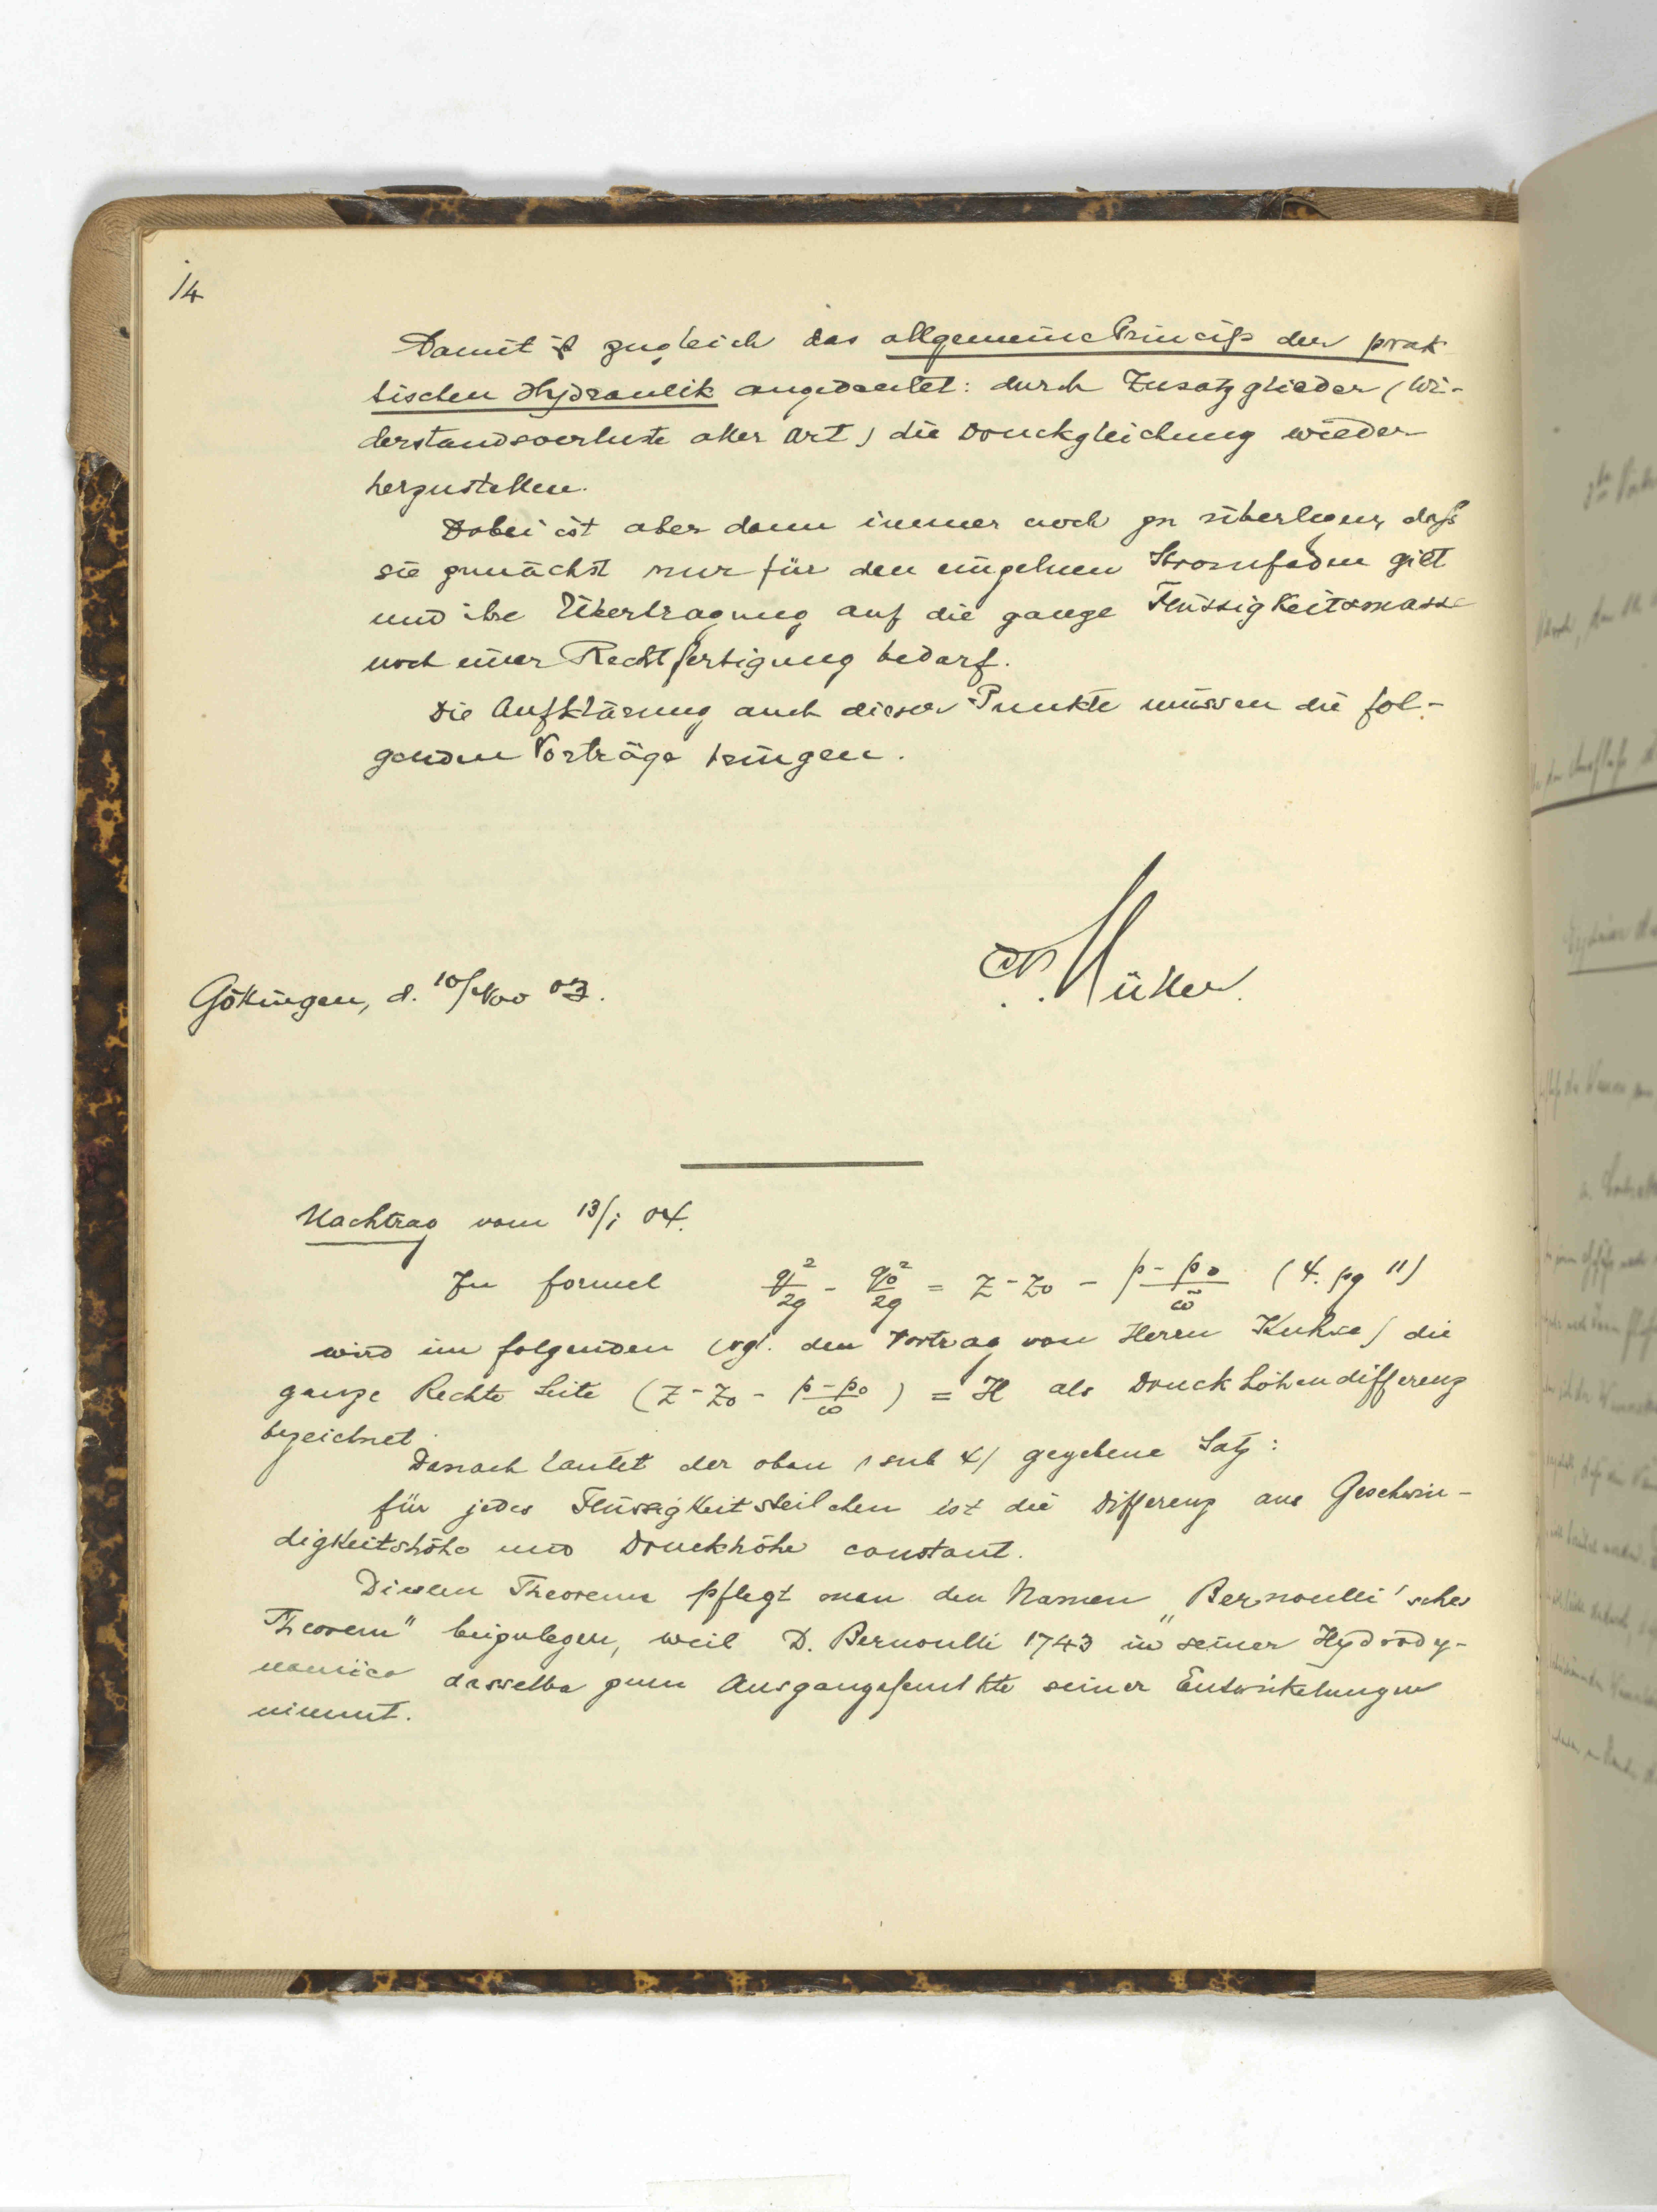 14
Damit ist zugleich das allgemeine Princip der prak
tischen Hydraulik angedeutet: durch Zusatzglieder (Wi-
derstandsverluste aller Art) die Druckgleichung wieder
herzustellen.
Dabei ist aber dann immer noch zu überlegen, daß
sie zunächst nur für den einzelnen Stromfaden gilt
und ihre Übertragung auf die ganze Flüssigkeitsmasse
noch einer Rechtfertigung bedarf.
Die Aufklärung auch dieser Punkte müssen die fol-
genden Vorträge bringen.
C. H. Müller.
Göttingen, d. 10/Nov 03.
Nachtrag vom 13/i 04.
In formel q²/2g - q₀²/2g = z - z₀ - (p - p₀)/ω̄ (4. pg 11)
wird im folgenden (vgl. den Vortrag von Herrn ) die
ganze Rechte Seite (z - z₀ - (p - p₀)/ω) = H als Druckhöhendifferenz
bezeichnet.
Danach lautet der oben (sub 4) gegebene Satz:
für jedes Flüssigkeitsteilchen ist die Differenz aus Geschwin-
digkeitshöhe und Druckhöhe constant.
Diesem Theoreme pflegt man den Namen „Bernoulli'sches
Theorem" beizulegen, weil D. Bernoulli 1743 in seiner Hydrody-
namica dasselbe zum Ausgangspunkte seiner Entwickelungen
nimmt.